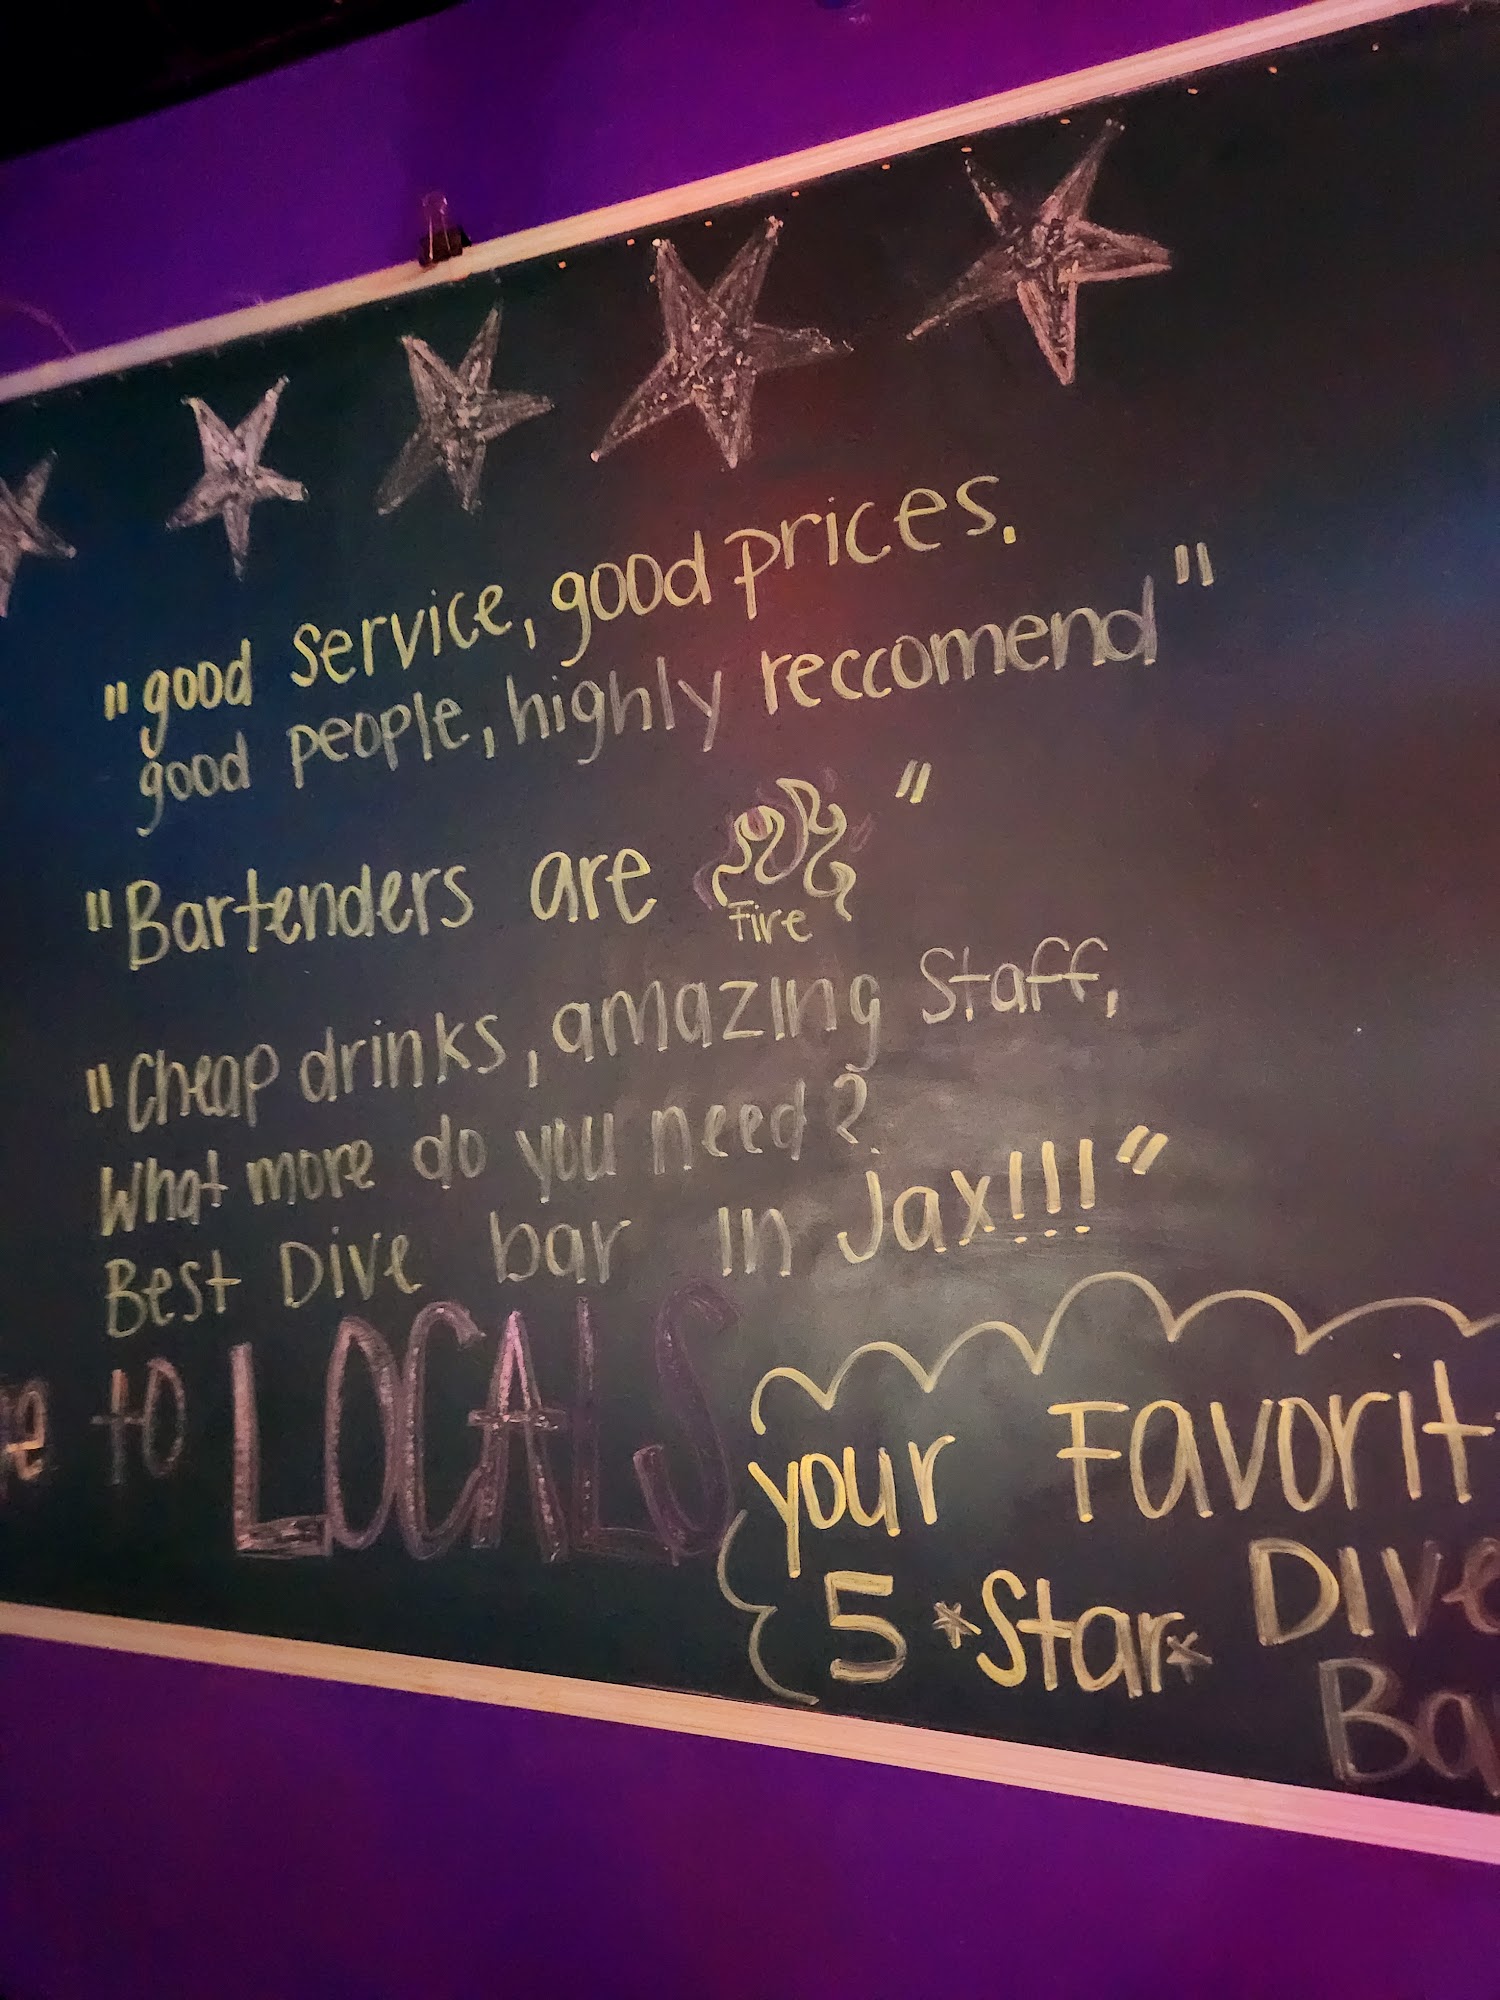 "good service, good prices.
good people, highly reccomend"
"Bartenders are "
Fire
"Cheap drinks, amazing Staff,
What more do you need?
Best Dive bar in Jax!!!"
to LOCALS
your Favorit
5 *Star* Dive
Ba